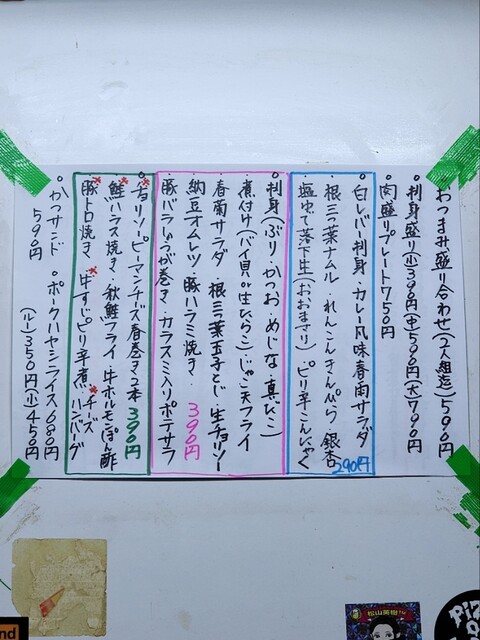 ・おつまみ盛り合わせ(2人組迄)590円
・刺身盛り(小)390円(中)590円(大)790円
・肉盛りプレート750円
・白レバー刺身・カレー風味春雨サラダ
・根三つ葉ナムル・れんこんきんぴら・銀杏
・塩ゆで落下生(おおまさり)・ピリ辛こんにゃく
290円
・刺身(ぶり・かつお・めじな・真いわし)
・煮付け(バイ貝or生ひらこ)じゃこ天フライ
・春菊サラダ・根三つ葉玉子とじ・生チョリソー
・納豆オムレツ・豚ハラミ焼き・390円
・豚バラしょうが巻き・カラスミ入りポテサラ
・チョリソーピーマンチーズ春巻き2本390円
・鮭ハラス焼き・秋鮭フライ・牛ホルモンぽん酢
・豚トロ焼き・牛すじピリ辛煮・チーズハンバーグ
・かつサンド・ポークハヤシライス680円
590円
(ルー)350円(小)450円
松山英樹